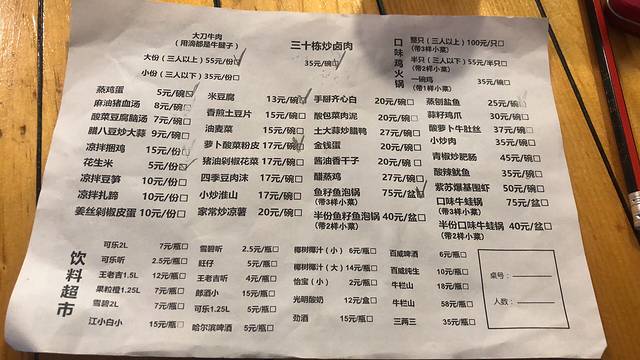 大刀牛肉
(用滴都是牛腱子)
大份(三人以上)55元/份□
小份(三人以下)35元/份□
三十栋炒卤肉
35元/碗□
口味鸡火锅
整只(三人以上)100元/只□
(带3样小菜)
半只(三人以下)55元/半只□
(带2样小菜)
一碗鸡 35元/碗□
(带1样小菜)
蒸鸡蛋 5元/碗□
麻油猪血汤 8元/碗□
酸菜豆腐脑汤 7元/碗□
腊八豆炒大蒜 9元/碗□
凉拌捆鸡 15元/份□
花生米 5元/份□
凉拌豆笋 10元/份□
凉拌扎蹄 10元/份□
姜丝剁椒皮蛋 10元/份□
米豆腐 13元/碗□
香煎土豆片 15元/碗□
油麦菜 15元/碗□
萝卜酸菜粉皮 17元/碗□
猪油剁椒花菜 17元/碗□
四季豆肉沫 17元/碗□
小炒淮山 17元/碗□
家常炒凉薯 20元/碗□
手掰齐心白 20元/碗□
酸包菜肉泥 20元/碗□
土大蒜炒腊鸭 27元/碗□
金钱蛋 20元/碗□
酱油香干子 20元/碗□
醋蒸鸡 27元/碗□
鱼籽鱼泡锅 75元/盆□
(带3样小菜)
半份鱼籽鱼泡锅 40元/盆□
(带2样小菜)
蒸刨盐鱼 25元/碗□
蒜籽鸡爪 30元/碗□
酸萝卜牛肚丝 37元/碗□
小炒肉 35元/碗□
青椒炒肥肠 45元/碗□
酸辣鱿鱼 35元/碗□
紫苏爆基围虾 50元/碗□
口味牛蛙锅 75元/盆□
(带3样小菜)
半份口味牛蛙锅 40元/盆□
(带2样小菜)
饮料超市
可乐2L 7元/瓶□
可乐听 2.5元/瓶□
王老吉1.5L 12元/瓶□
果粒橙1.25L 7元/瓶□
雪碧2L 7元/瓶□
江小白小 15元/瓶□
雪碧听 2.5元/瓶□
旺仔 5元/瓶□
王老吉听 4元/瓶□
郎酒小 15元/瓶□
可乐1.25L 5元/瓶□
哈尔滨啤酒 5元/瓶□
椰树椰汁(小) 6元/瓶□
椰树椰汁(大) 14元/瓶□
怡宝(小) 2元/瓶□
光明酸奶 12元/盒□
劲酒 15元/瓶□
百威啤酒 6元/瓶□
百威纯生 10元/瓶□
牛栏山 18元/瓶□
牛栏山 58元/瓶□
三两三 35元/瓶□
桌号:
人数: